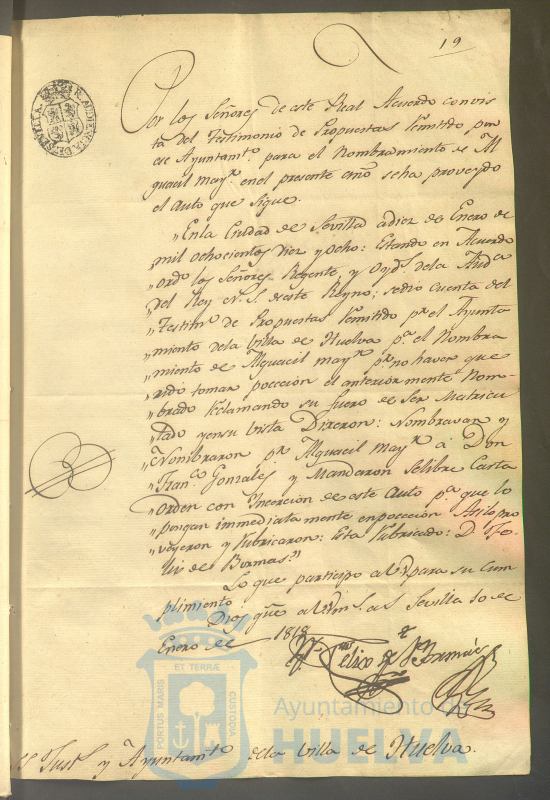 19
Por los Señores de este Real Acuerdo con vis
ta del Testimonio de Propuestas Remitido por
ese Ayuntam.to para el Nombramiento de Al
guacil may.r en el presente año se ha proveydo
el auto que sigue.
"En la Ciudad de Sevilla a diez de Enero de
"mil ochocientos diez y ocho: Estando en Acuerdo
"ord.o los Señores Regente, y Oyd.s de la Aud.a
"del Rey N. S. de este Reyno; se dio cuenta del
"Testim.o de Propuestas Remitido p.r el Ayunta
"miento de la Villa de Huelva p.a el Nombra
"miento de Alguacil may.r p.r no haver que
"rido tomar poceción el anteriormente Nom
"brado Reclamando su fuero de Ser Matricu
"lado y en su Vista Dixeron: Nombravan y
"Nombraron p.r Alguacil may.r á Don
"Fran.co Gonzales y Mandaron Se libre Carta
"orden con Incerción de este Auto p.a que lo
"pongan immediatamente en poceción Asi lo pro
"veyeron y Rubricaron: Esta Rubricado: D. Fe-
"lix de Bormas"
Lo que participo a V. para su Cum
plimiento
Dios gue. a V. m.s a.s Sevilla 10 de
Enero de 1818
Felix de Bormas
y Ayuntam.to de la Villa de Huelva.
PORTUS MARIS
ET TERRÆ
CUSTODIA
Ayuntamiento de
HUELVA